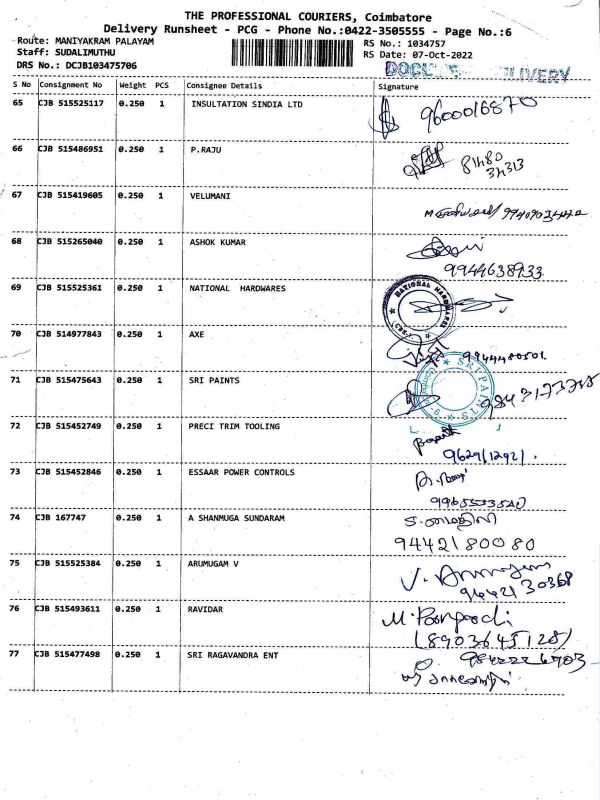 THE PROFESSIONAL COURIERS, Coimbatore
Delivery Runsheet - PCG - Phone No.:0422-3505555 - Page No.:6
Route: MANIYAKRAM PALAYAM
Staff: SUDALIMUTHU
DRS No.: DCJB103475706
RS No.: 1034757
RS Date: 07-Oct-2022
S No Consignment No Weight PCS Consignee Details Signature
65 CJB 515525117 0.250 1 INSULTATION SINDIA LTD 9600016870
66 CJB 515486951 0.250 1 P.RAJU 81480
34313
67 CJB 515419605 0.250 1 VELUMANI
68 CJB 515265040 0.250 1 ASHOK KUMAR
9944638933
69 CJB 515525361 0.250 1 NATIONAL HARDWARES
NATIONAL HARDWARES
70 CJB 514977843 0.250 1 AXE 9944480501
71 CJB 515475643 0.250 1 SRI PAINTS
SRI PAINTS
9843173715
72 CJB 515452749 0.250 1 PRECI TRIM TOOLING
73 CJB 515452846 0.250 1 ESSAAR POWER CONTROLS
74 CJB 167747 0.250 1 A SHANMUGA SUNDARAM
9442180080
75 CJB 515525384 0.250 1 ARUMUGAM V V. Arumugam
9442130368
76 CJB 515493611 0.250 1 RAVIDAR M. Poongodi
(8903645128)
77 CJB 515477498 0.250 1 SRI RAGAVANDRA ENT